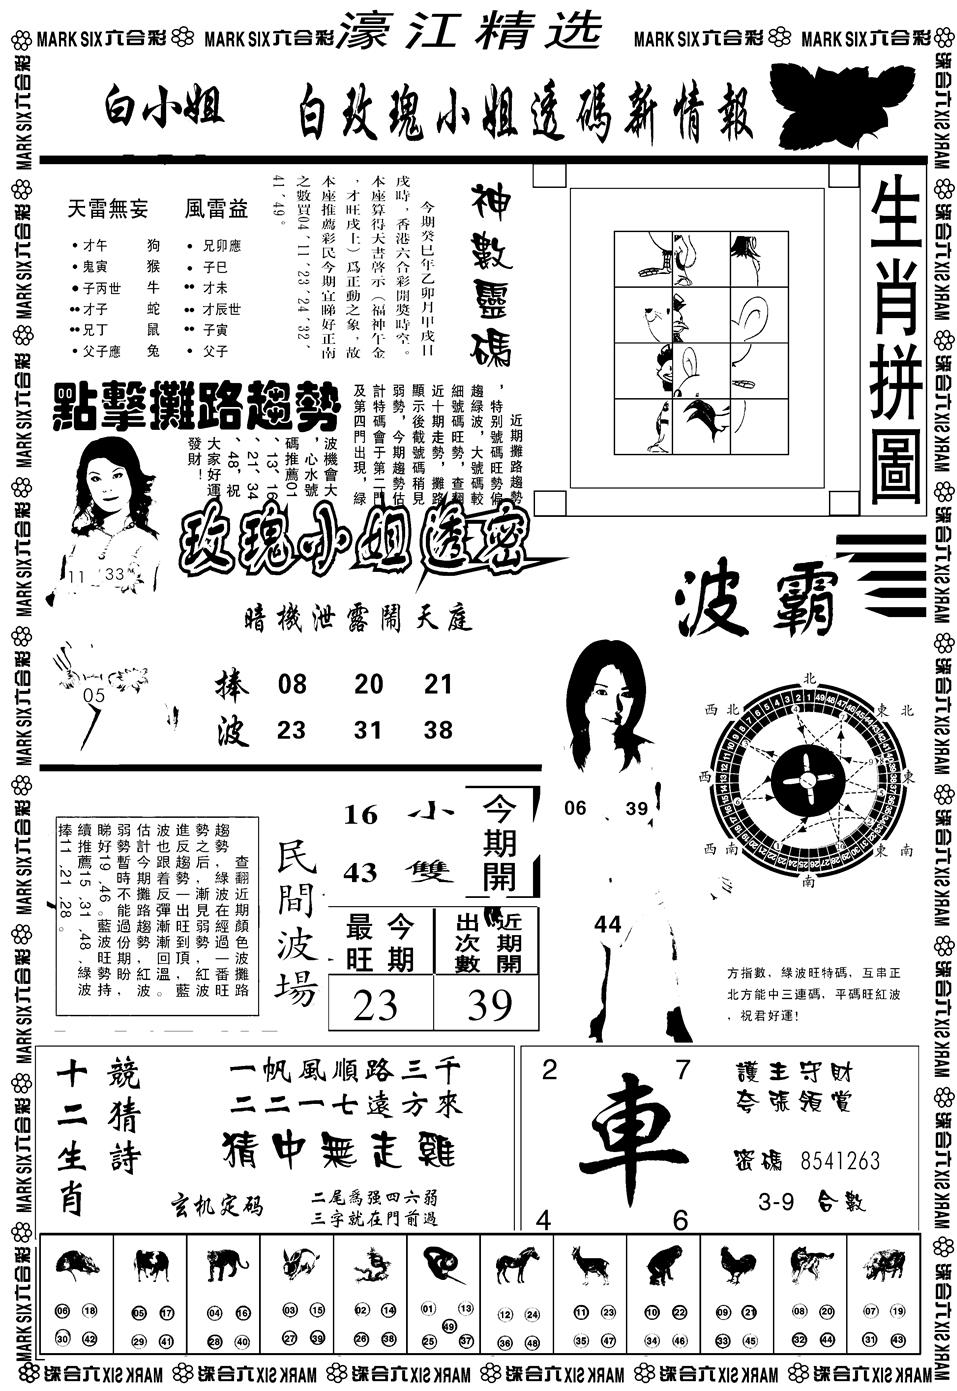 MARK SIX六合彩
MARK SIX六合彩
濠江精选
MARK SIX六合彩
MARK SIX六合彩
白小姐
白玫瑰小姐透碼新情報
天雷無妄
風雷益
才午 狗
鬼寅 猴
子丙世 牛
才子 蛇
兄丁 鼠
父子應 兔
兄卯應
子巳
才未
才辰世
子寅
父子
神數靈碼
今期癸巳年乙卯月甲戌日
戌時，香港六合彩開獎時空。
本座算得天書啓示（福神午金
，才旺戌土）爲正動之象，故
本座推薦彩民今期宜睇好正南
之數買04、11、23、24、32、
41、49。
生肖拼圖
點擊攤路趨勢
近期攤路趨勢
，特别號碼旺勢偏
趨綠波，大號碼較
細號碼旺勢，查翻
近十期走勢，攤路
顯示後截號碼稍見
弱勢，今期趨勢估
計特碼會于第二門
及第四門出現，綠
波機會大
，心水號
碼推薦01
、13、16
、21、34
、48，祝
大家好運
發財！
11 33
05
玫瑰小姐透密
暗機泄露鬧天庭
捧波
08 20 21
23 31 38
波霸
北
東北
東
東南
南
西南
西
西北
06 39
44
方指數，綠波旺特碼，互串正
北方能中三連碼，平碼旺紅波
，祝君好運!
查翻近期顏色波攤路
趨勢，綠波在經過一番旺
勢之后，漸見弱勢，紅波
進反趨勢一出旺到頂，藍
波也跟着反彈漸漸回溫。
估計今期攤路趨勢，紅波
弱勢暫時不能過份期盼，
睇好19、46。藍波旺勢持
續推薦15、31、48，綠波
捧11、21、28。
民間波場
16 小
43 雙
今期開
今期最旺
近期開出次數
23
39
十二生肖
競猜詩
一帆風順路三千
二二一七遠方來
猜中無走雞
玄机定码
二尾爲强四六弱
三字就在門前過
2
7
車
4
6
護主守財
夸張領賞
密碼 8541263
3-9 合數
06 18 30 42
05 17 29 41
04 16 28 40
03 15 27 39
02 14 26 38
01 13 49 25 37
12 24 36 48
11 23 35 47
10 22 34 46
09 21 33 45
08 20 32 44
07 19 31 43